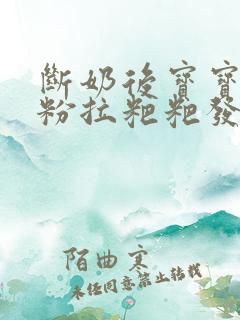 斷奶後寶寶
粉拉粑粑發
陌曲寒
未任同意禁止轉載